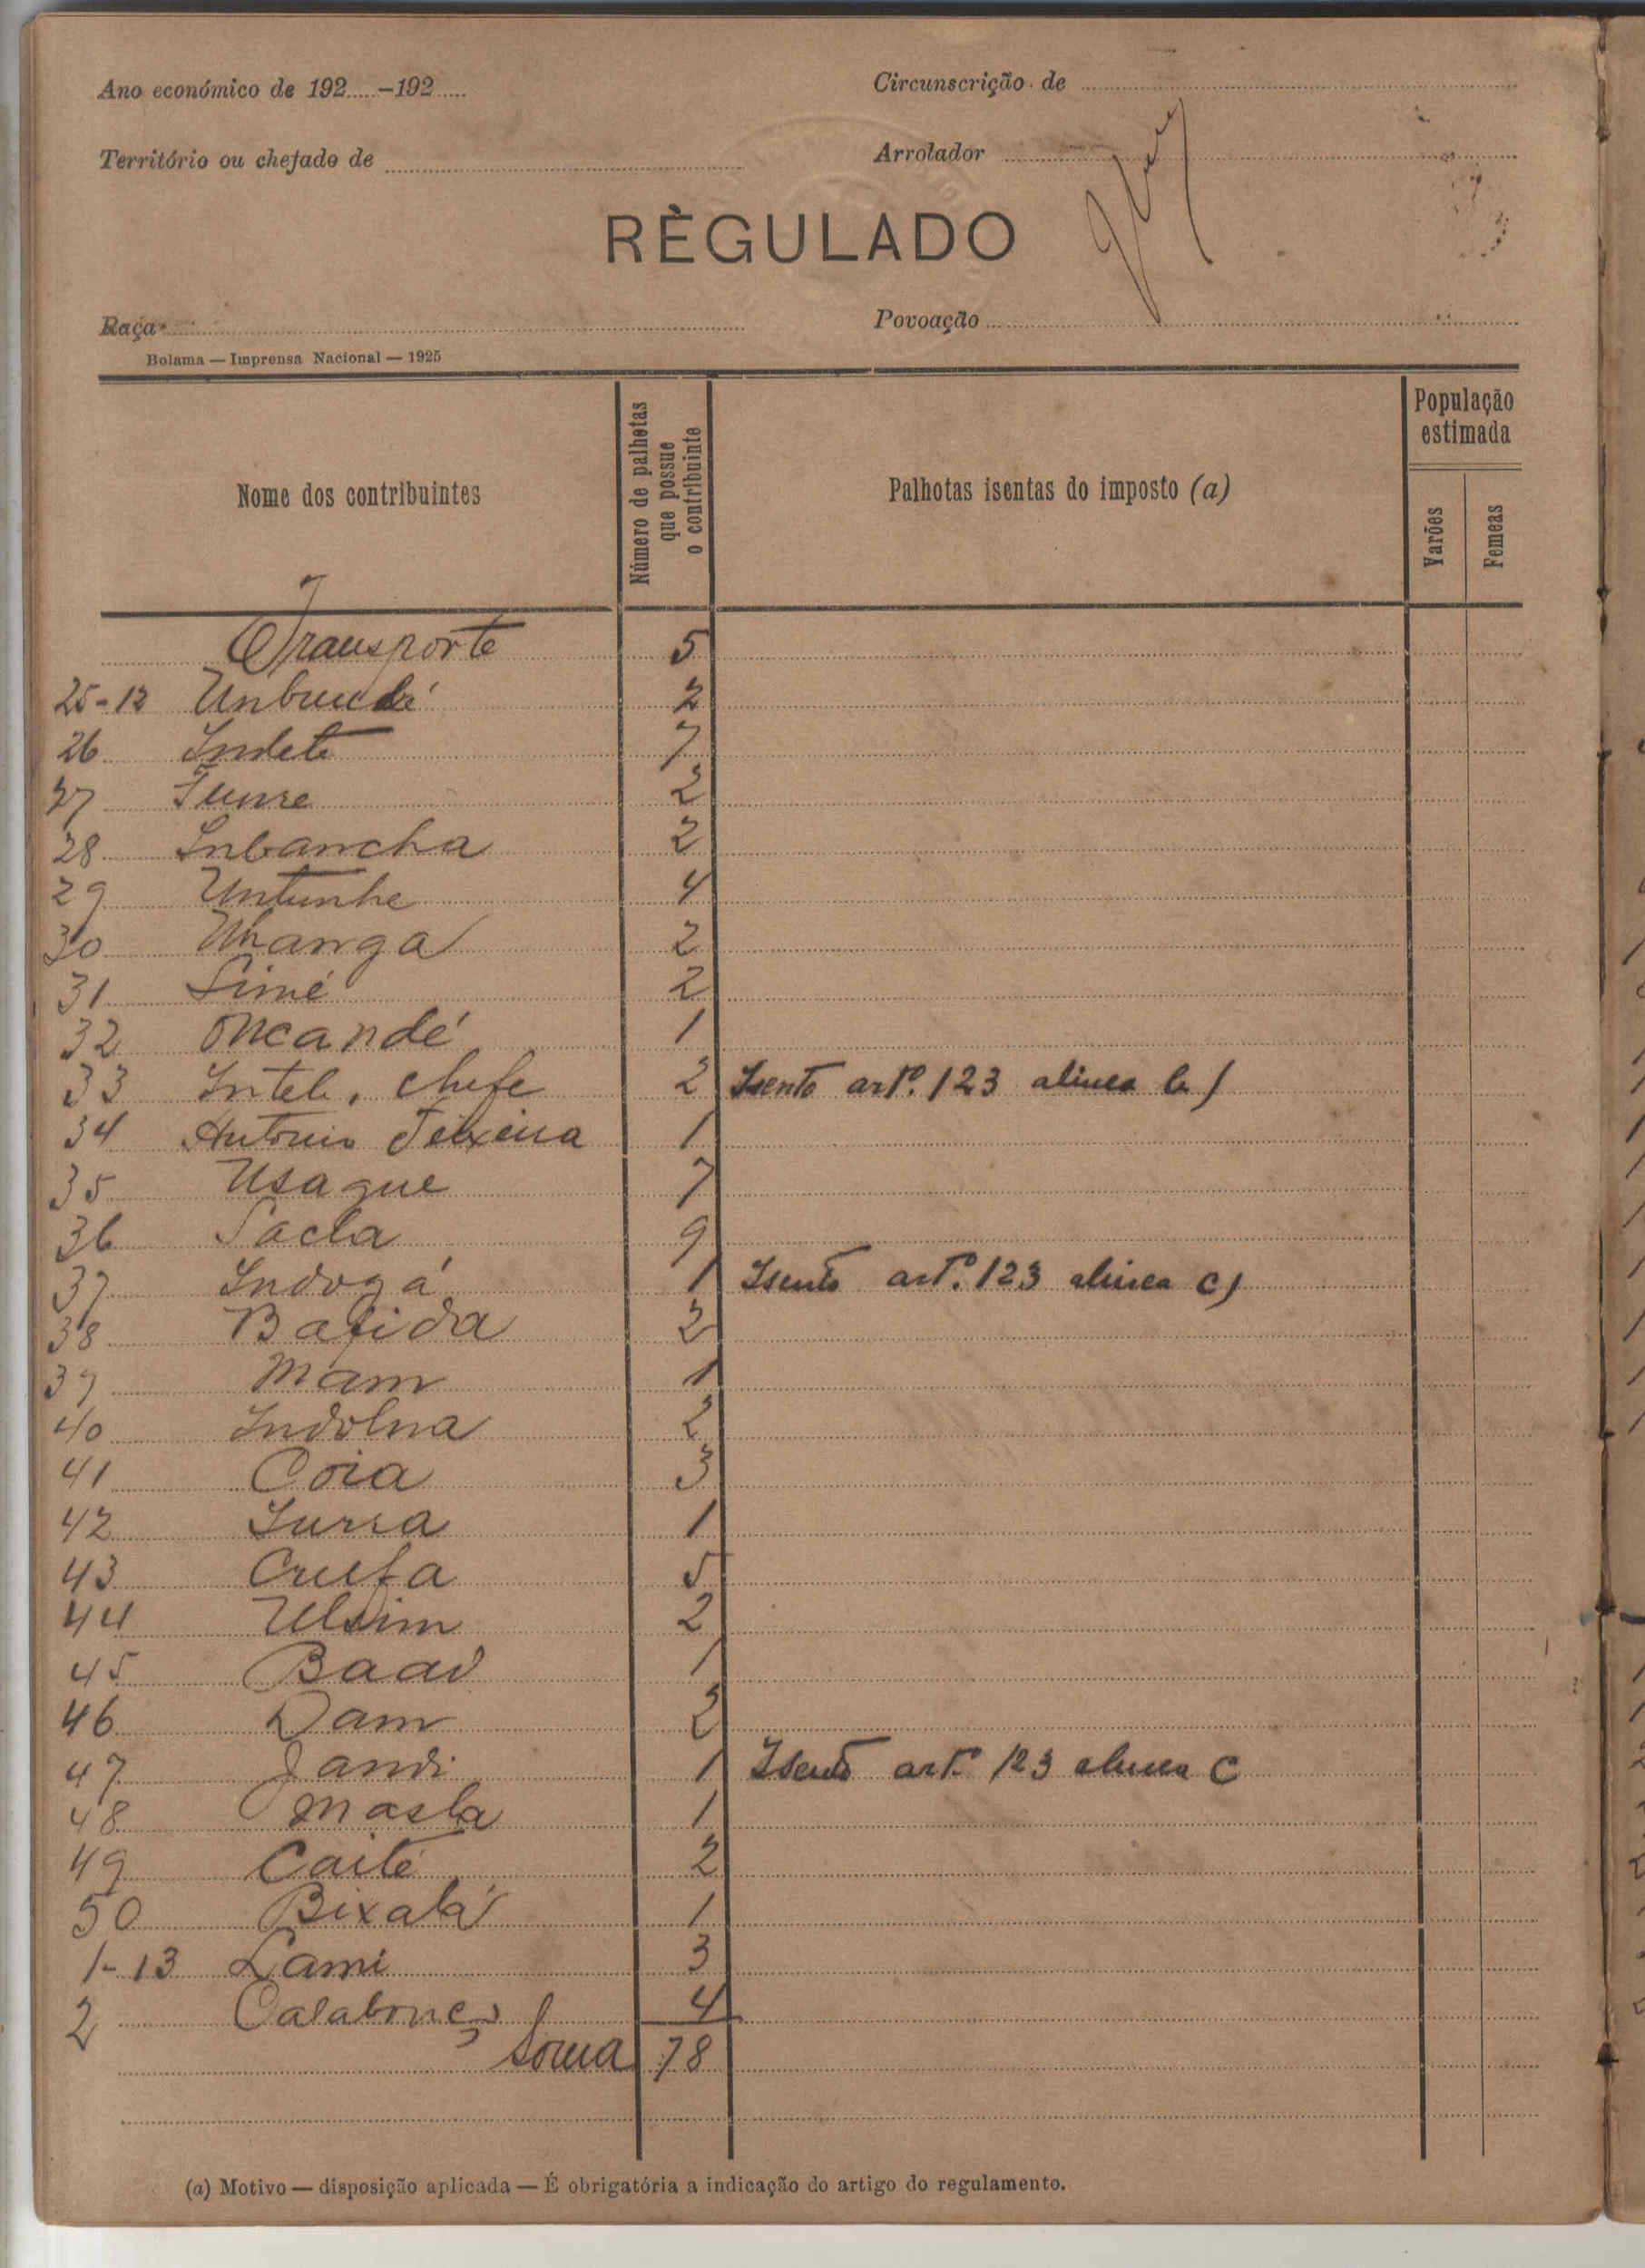 Ano económico de 192.....-192.....
Circunscrição de
Território ou chefado de
Arrolador
RÈGULADO
Raça
Povoação
Bolama — Imprensa Nacional — 1925
Nome dos contribuintes
Número de palhotas que possue o contribuinte
Palhotas isentas do imposto (a)
População estimada
Varões
Femeas
Transporte 5
25-12 2
26 Indete 7
27 Funre 2
28 Inbancha 2
29 Untunhe 4
30 Nhanga 2
31 Simé 2
32 Oncandé 1
33 Intele, chefe 2 Isento artº. 123 alinea b)
34 Antonio Teixeira 1
35 Usague 7
36 Sacla 9
37 Indogá 1 Isento artº. 123 alinea c)
38 Bafida 2
39 Mam 1
40 Indolna 2
41 Coia 3
42 1
43 Crufa 5
44 Uldim 2
45 Baad 1
46 Dam 2
47 Jandi 1 Isento artº 123 alinea C
48 Masla 1
49 Caité 2
50 Bixalá 1
1-13 Lami 3
2 4
Soma 78
(a) Motivo — disposição aplicada — É obrigatória a indicação do artigo do regulamento.